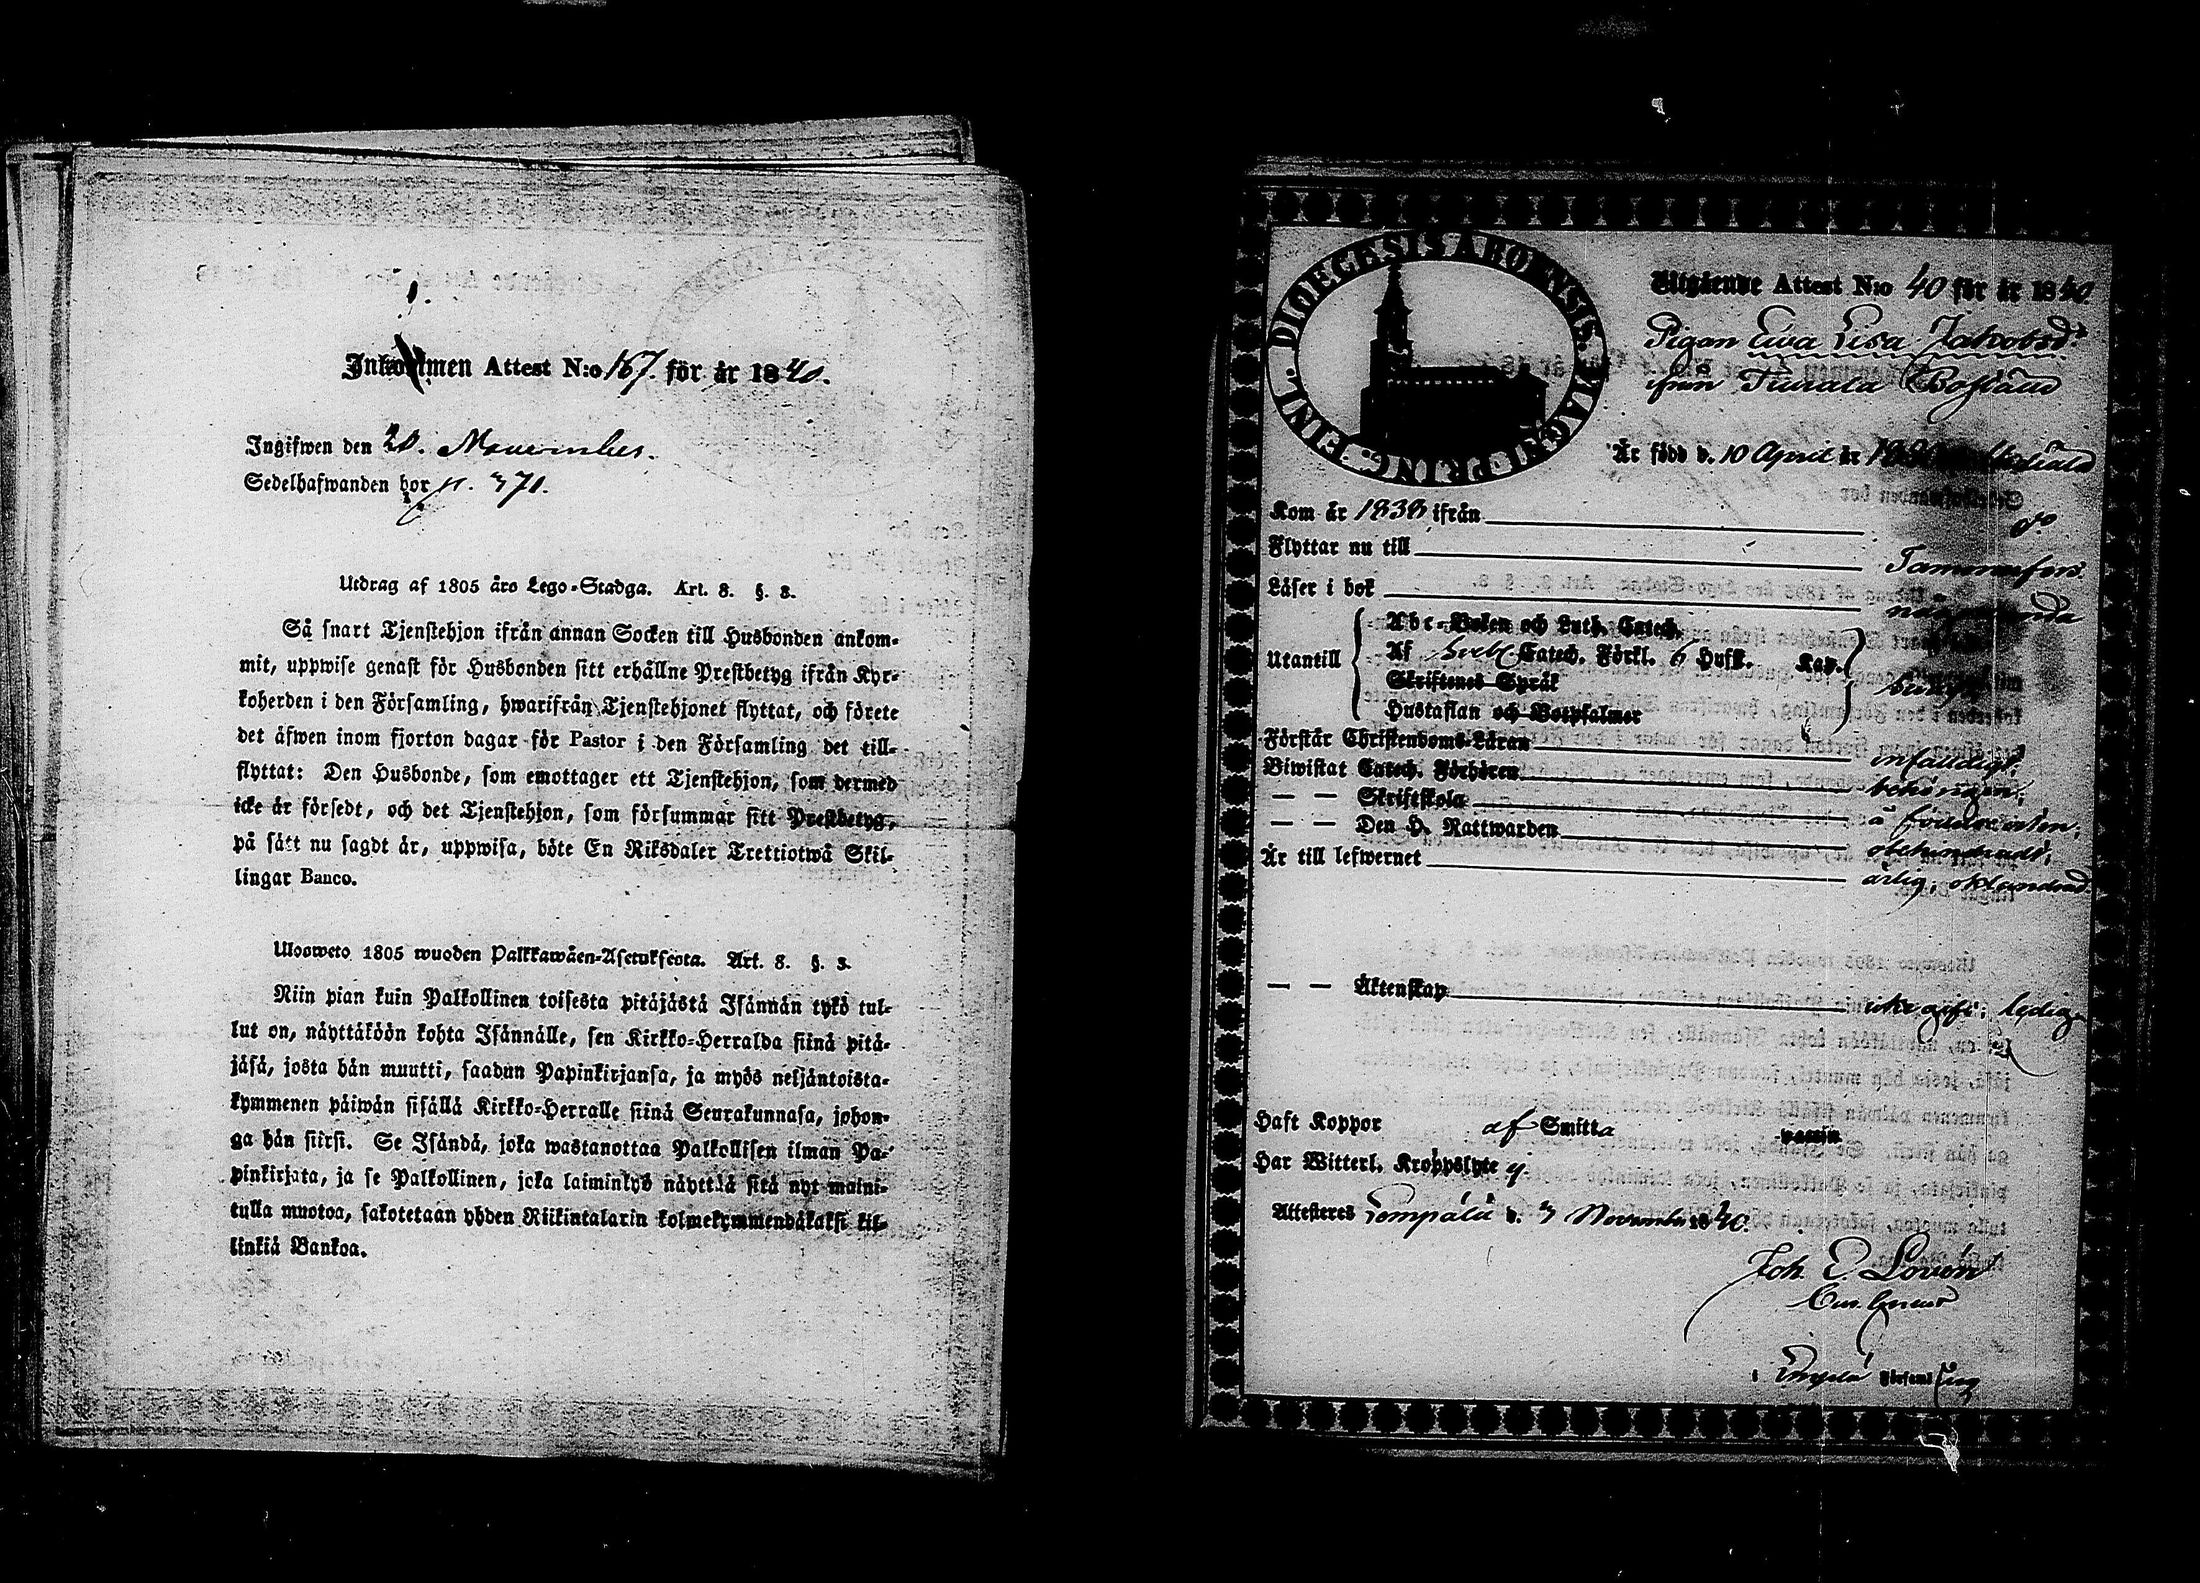 1.
Inkommen Attest N:o 167. för år 1840.
Ingifwen den 20. November.
Sedelhafwanden bor p. 371.
Utdrag af 1805 åro Lego-Stadga. Art. 8. §. 8.
Så snart Tjenstehjon ifrån annan Socken till Husbonden ankom-
mit, uppwise genast för Husbonden sitt erhållne Prestbetyg ifrån Kyr-
koherden i den Församling, hwarifrån Tjenstehjonet flyttat, och förete
det äfwen inom fjorton dagar för Pastor i den Församling det till-
flyttat: Den Husbonde, som emottager ett Tjenstehjon, som dermed
icke är försedt, och det Tjenstehjon, som försummar sitt Prestbetyg,
på sätt nu sagdt är, uppwisa, böte En Riksdaler Trettiotwå Skil-
lingar Banco.
Ulosweto 1805 wuoden Palkkawäen-Asetuksesta. Art. 8. §. 3.
Niin pian kuin Palkollinen toisesta pitäjästä Isännän tykö tul-
lut on, näyttäköön kohta Isännälle, sen Kirkko-Herralda siinä pitä-
jäsä, josta hän muutti, saadun Papinkirjansa, ja myös neljäntoista-
kymmenen päiwän sisällä Kirkko-Herralle siinä Seurakunnasa, johon-
ga hän siirsi. Se Isändä, joka wastanottaa Palkollisen ilman Pa-
pinkirjata, ja se Palkollinen, joka laiminlyö näyttää sitä nyt maini-
tulla muotoa, sakotetaan yhden Riikintalarin kolmekymmendäkaksi kil-
linkiä Bankoa.
DIOECESIS ABOENSIS. MAGNI PRINC. FINL.
Utgående Attest N:o 40 för år 1840
Pigan Ewa Lisa Jakobsd:r
ifrån Turala Boställ
Är född d. 10 April år 1820
Kom år 1838 ifrån
Flyttar nu till Tammerfors.
Läser i bok
Utantill
Abc-Boken och Luth. Catech.
Af Sveb. Catech. Förkl. 6 Hufst. Kap.
Skriftenes Språk
Hustaflan och Botpsalmer
Förstår Christendoms-Läran infaldigt;
Biwistat Catech. Förhören behörigen;
— — Skriftskola å förra orten;
— — Den H. Nattwarden obehindradt;
Är till lefwernet ärlig, oklandrad
— — Äktenskap icke gift; ledig
Haft Koppor af Smitta vaccin
Har Witterl. Kroppslyte ej
Attesteras Lempälä d. 3 November 1840.
Joh. E. Lovén
i Lempälä Församling